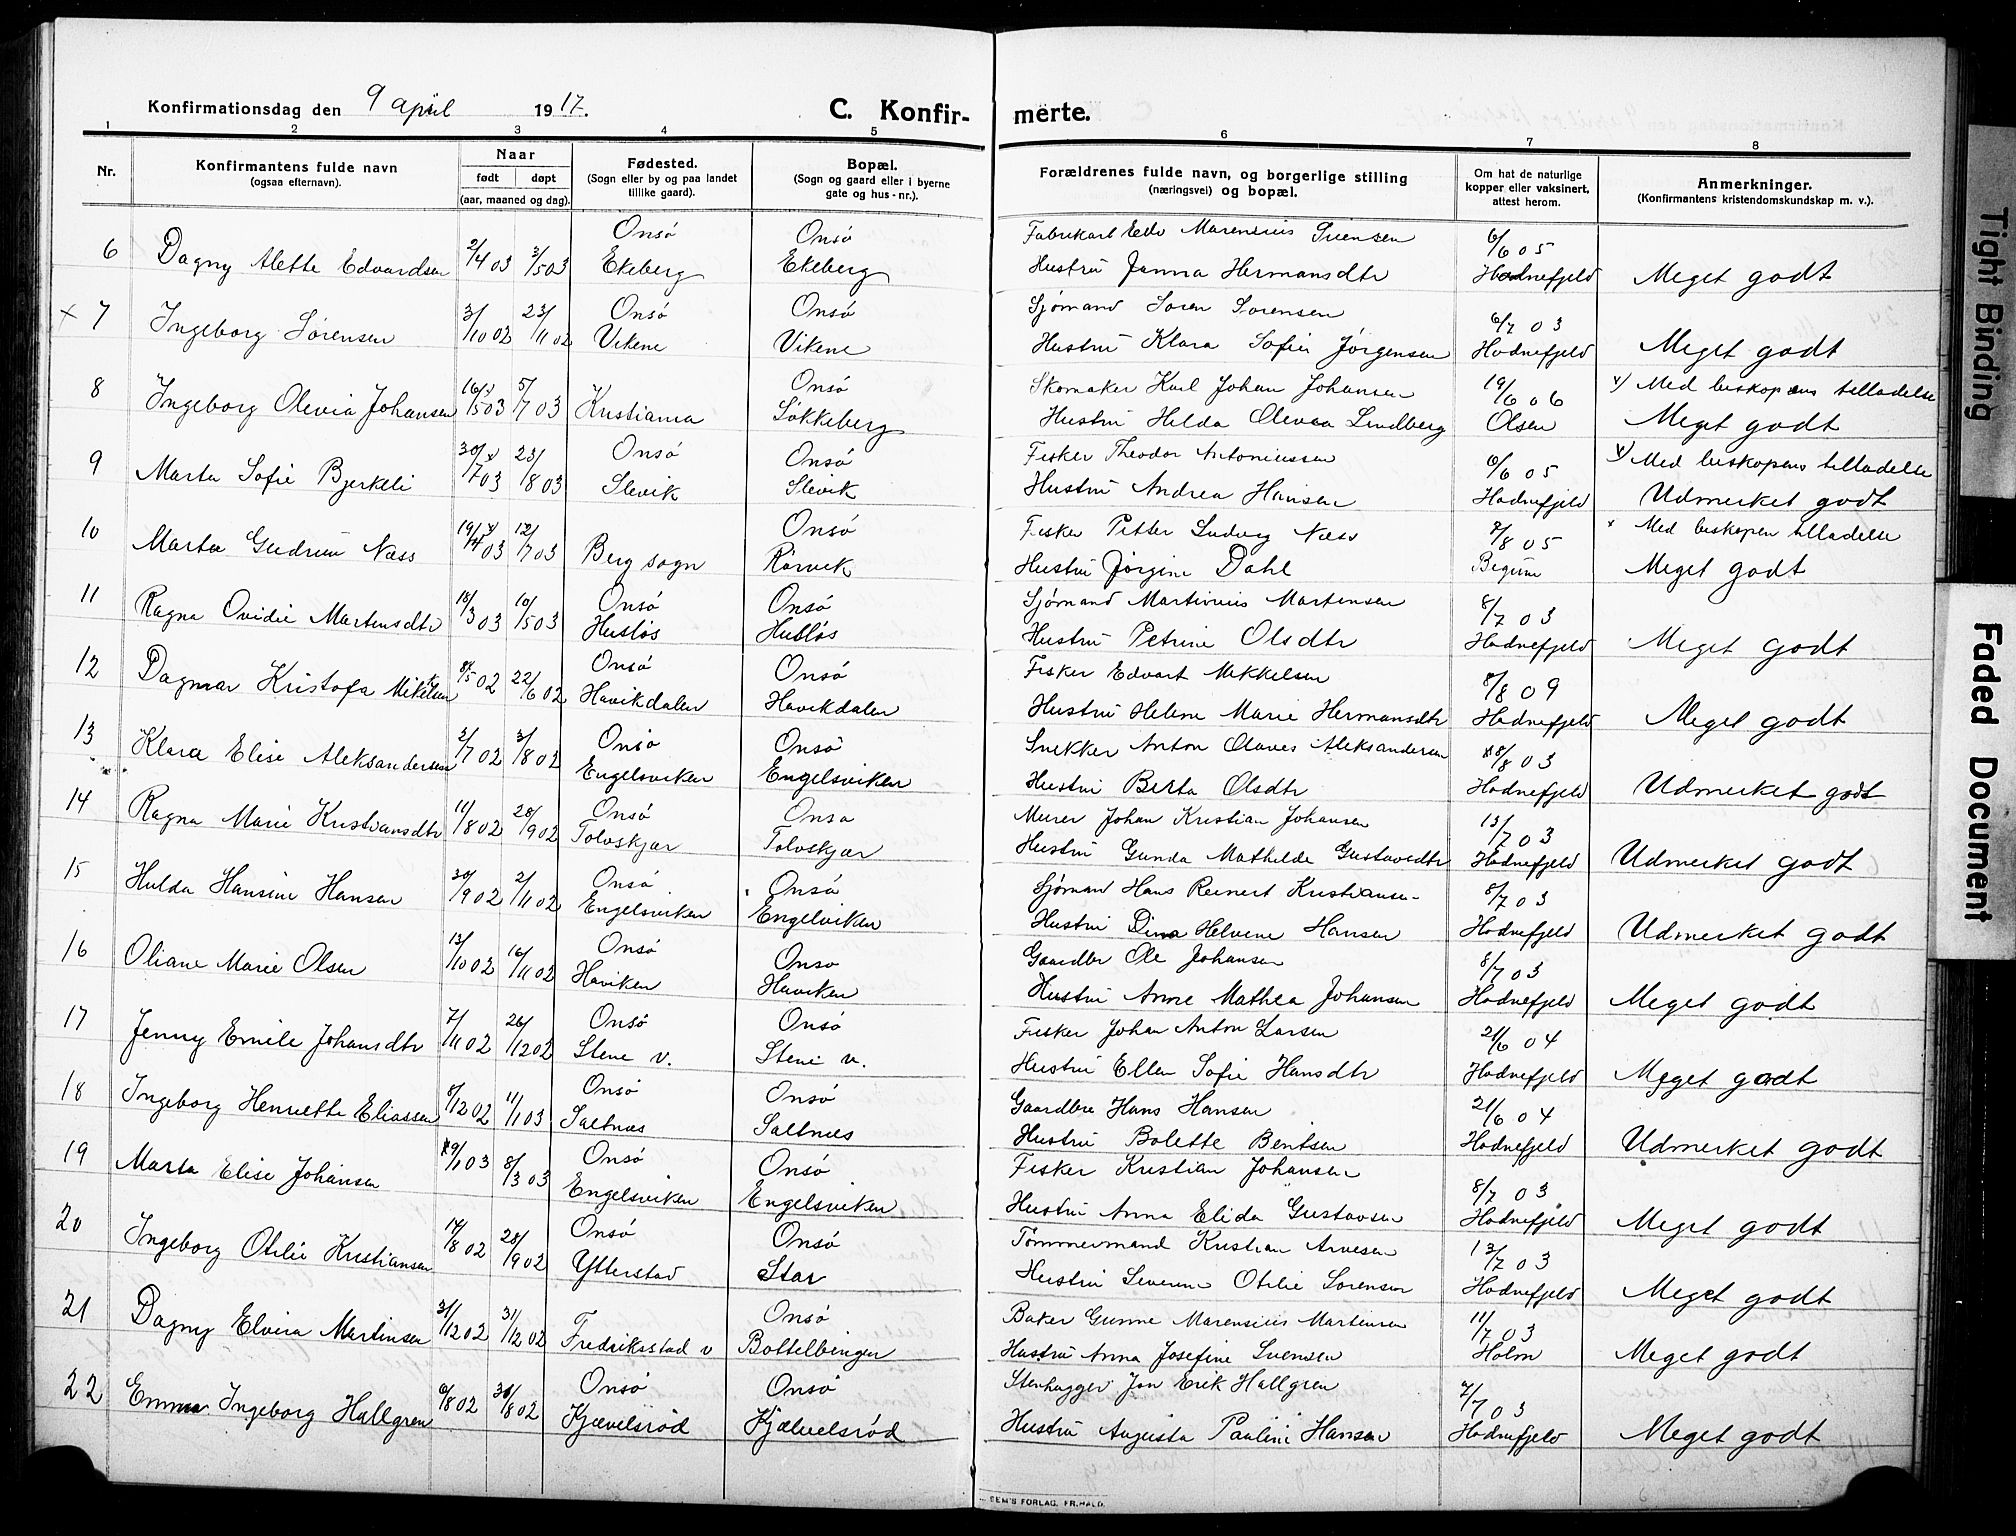 Konfirmationsdag den 9 april 1917.
C. Konfir- merte.
1 2 3 4 5 6 7 8
Nr.
Konfirmantens fulde navn
(ogsaa efternavn).
Naar
født døpt
(aar, maaned og dag).
Fødested.
(Sogn eller by og paa landet
tillike gaard).
Bopæl.
(Sogn og gaard eller i byerne
gate og hus-nr.).
Forældrenes fulde navn, og borgerlige stilling
(næringsvei) og bopæl.
Om hat de naturlige
kopper eller vaksinert,
attest herom.
Anmerkninger.
(Konfirmantens kristendomskundskap m. v.).
Onsö Onsö Fabrikarb Edv Marensius Svensen 6/6 05
6 Dagny Alette Edvardsen 2/4 03 3/5 03 Ekeberg Ekeberg Hustru Janna Hermansdtr Hodnefjeld Meget godt
Onsö Onsö Sjømand Soren Sorensen 6/7 03
x 7 Ingeborg Sørensen 3/10 02 23/11 02 Vikene Vikene Hustru Klara Sofie Jørgensen Hodnefjeld Meget godt
Onsö Skomaker Karl Johan Johansen 19/6 06 x) Med biskopens tilladelse
8 Ingeborg Olevia Johansen 16/5 03 5/7 03 Kristiania Løkkeberg Hustru Hilda Olevaa Lindberg Olsen Meget godt
Onsö Onsö Fisker Theodor Antoniussen 6/6 05 x) Med biskopens tilladelse
9 Marta Sofie Bjerkeli 30/7 03 23/8 03 Slevik Slevik Hustru Andrea Hansen Hodnefjeld Udmerket godt
Onsö Fisker Petter Ludvig Næss 7/8 05 x Med biskopen tilladelse
10 Marta Gudrun Næss 19/4 03 12/7 03 Berg sogn Rörvik Hustru Jørgine Dahl Meget godt
Onsö Onsö Sjømand Martinius Martensen 8/7 03
11 Ragna Ovidie Martensdtr 18/3 03 10/5 03 Husløs Husløs Hustru Petrine Olsdtr Hodnefjeld Meget godt
Onsö Onsö Fisker Edvart Mikkelsen 8/8 09
12 Dagmar Kristofa Mikkelsen 8/5 02 22/6 02 Havikdalen Havikdalen Hustru Helene Marie Hermansdtr Hodnefjeld Meget godt
Onsö Onsö Snekker Anton Olaves Aleksandersen 18/8 03
13 Klara Elise Aleksandersen 2/7 02 3/8 02 Engelsviken Engelsviken Hustru Berta Olsdtr Hodnefjeld Udmerket godt
Onsö Onsö Murer Johan Kristian Johansen 13/7 03
14 Ragna Marie Kristiansdtr 11/8 02 28/9 02 Tolvskjær Tolvskjær Hustru Gunda Mathilde Gustavsdtr Hodnefjeld Udmerket godt
Onsö Onsö Sjømand Hans Reinert Kristiansen 8/7 03
15 Hulda Hansine Hansen 30/9 02 2/11 02 Engelsviken Engelviken Hustru Dina Helvine Hansen Hodnefjeld Udmerket godt
Onsö Onso Gaardbr Ole Johansen 8/7 03
16 Oliane Marie Olsen 13/10 02 16/11 02 Haviken Haviken Hustru Anne Mathea Johansen Hodnefjeld Meget godt
Onsö Onsö Fisker Johan Anton Larsen 21/6 04
17 Jenny Emile Johansdtr 7/11 02 26/12 02 Stene v. Stene v. Hustru Ellen Sofie Hansdtr Hodnefjeld Meget godt
Onsö Onsö Gaardbru Hans Hansen 21/6 04
18 Ingeborg Henriette Eliassen 8/12 02 11/1 03 Saltnæs Saltnæs Hustru Bolette Bentsen Hodnefjeld Udmerket godt
Onsö Onsö Fisker Kristian Johansen 8/7 03
19 Marta Elise Johansen 9/1 03 8/3 03 Engelsviken Engelsviken Hustru Anna Elida Gustavsen Hodnefjeld Meget godt
Onsö Onsö Tømmermand Kristian Arvesen 13/7 03
20 Ingeborg Otelie Kristiansen 17/8 02 28/9 02 Ytterstad Star Hustru Severine Otelie Sorensen Hodnefjeld Meget godt
Onsö Baker Gunne Marensius Martinsen 11/7 03
21 Dagny Elvira Martinsen 3/12 02 31/12 02 Fredriksstad v Bottelbingen Hustru Anna Josefine Svensen Holm Meget godt
Onsö Onsö Stenhugger Jan Erik Hallgren 7/7 03
22 Emma Ingeborg Hallgren 6/8 02 30/8 02 Kjævelsröd Kjælvelsröd Hustru Augusta Pauline Hansen Hodnefjeld Meget godt
SEM'S FORLAG, FR.HALD.
Tight Binding
Faded Document